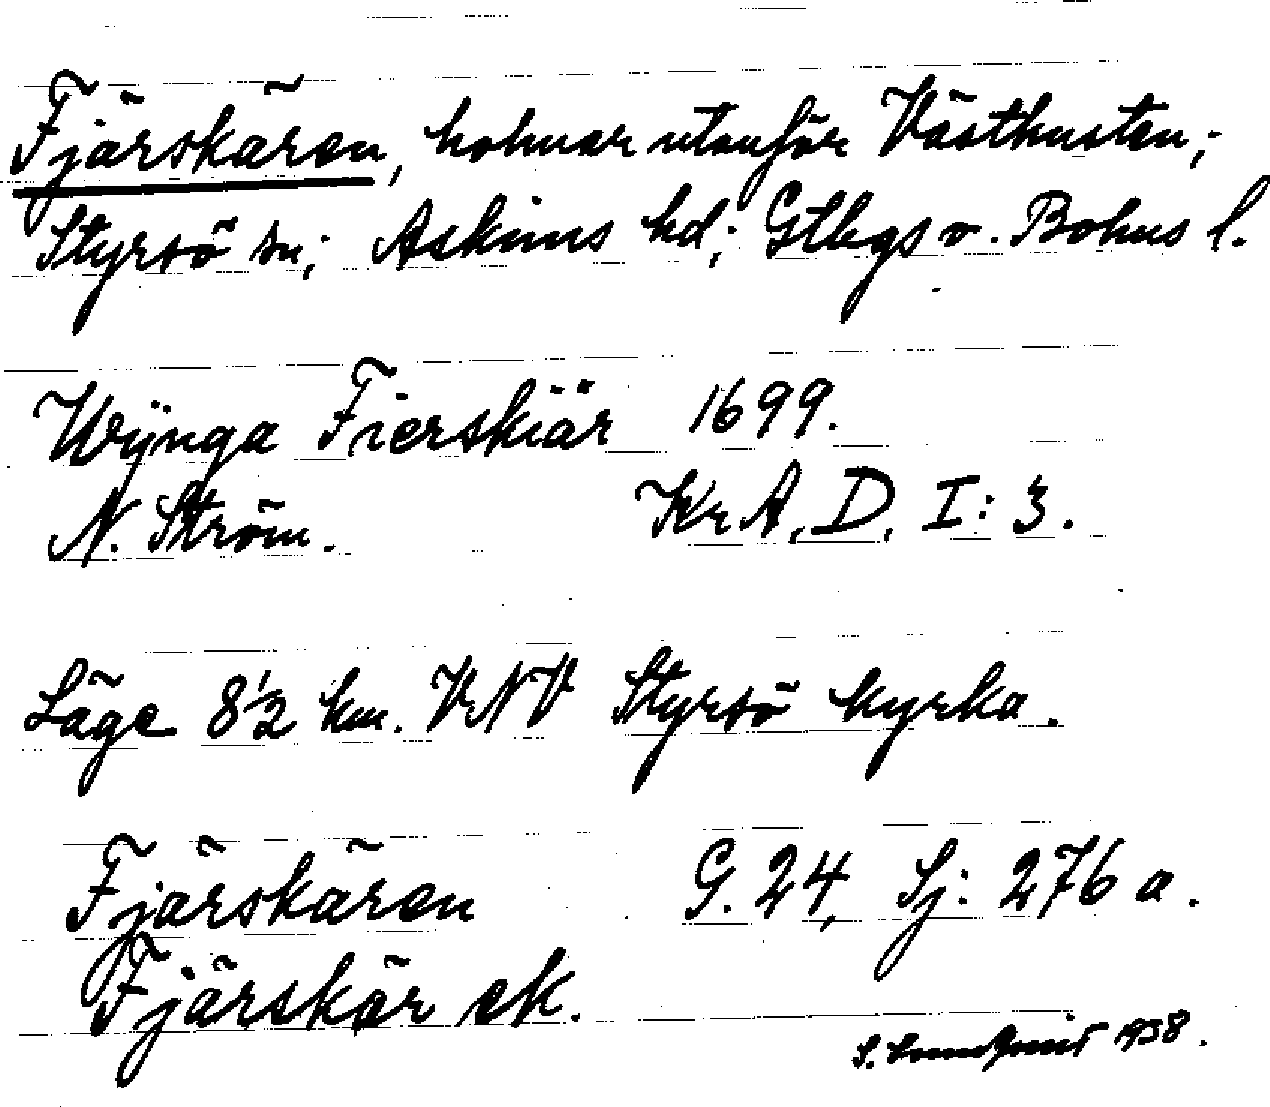 Fjärskären, holmar utanför Västkusten;
Styrsö sn; Askims hd; Gtbgs o. Bohus l.
Wijnga Fierskiär 1699.
N. Ström. Kr A, D, I: 3.
Läge 8½ km. VNV Styrsö kyrka.
Fjärskären G. 24, Sj: 276 a.
Fjärskär ek.
S. 1938.